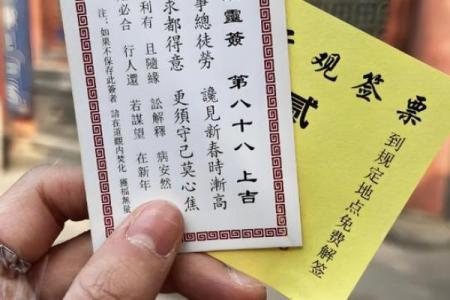 靈簽 第八十八 上吉
事總徒勞 讒見新春時漸高
求都得意 更須守己莫心焦
利有 且隨緣 訟解釋 病安然
必合 行人還 若謀望 在新年
注：如果不保存此簽者 請在道觀内焚化 獲福無量
观签票
贰
到规定地点免费解签